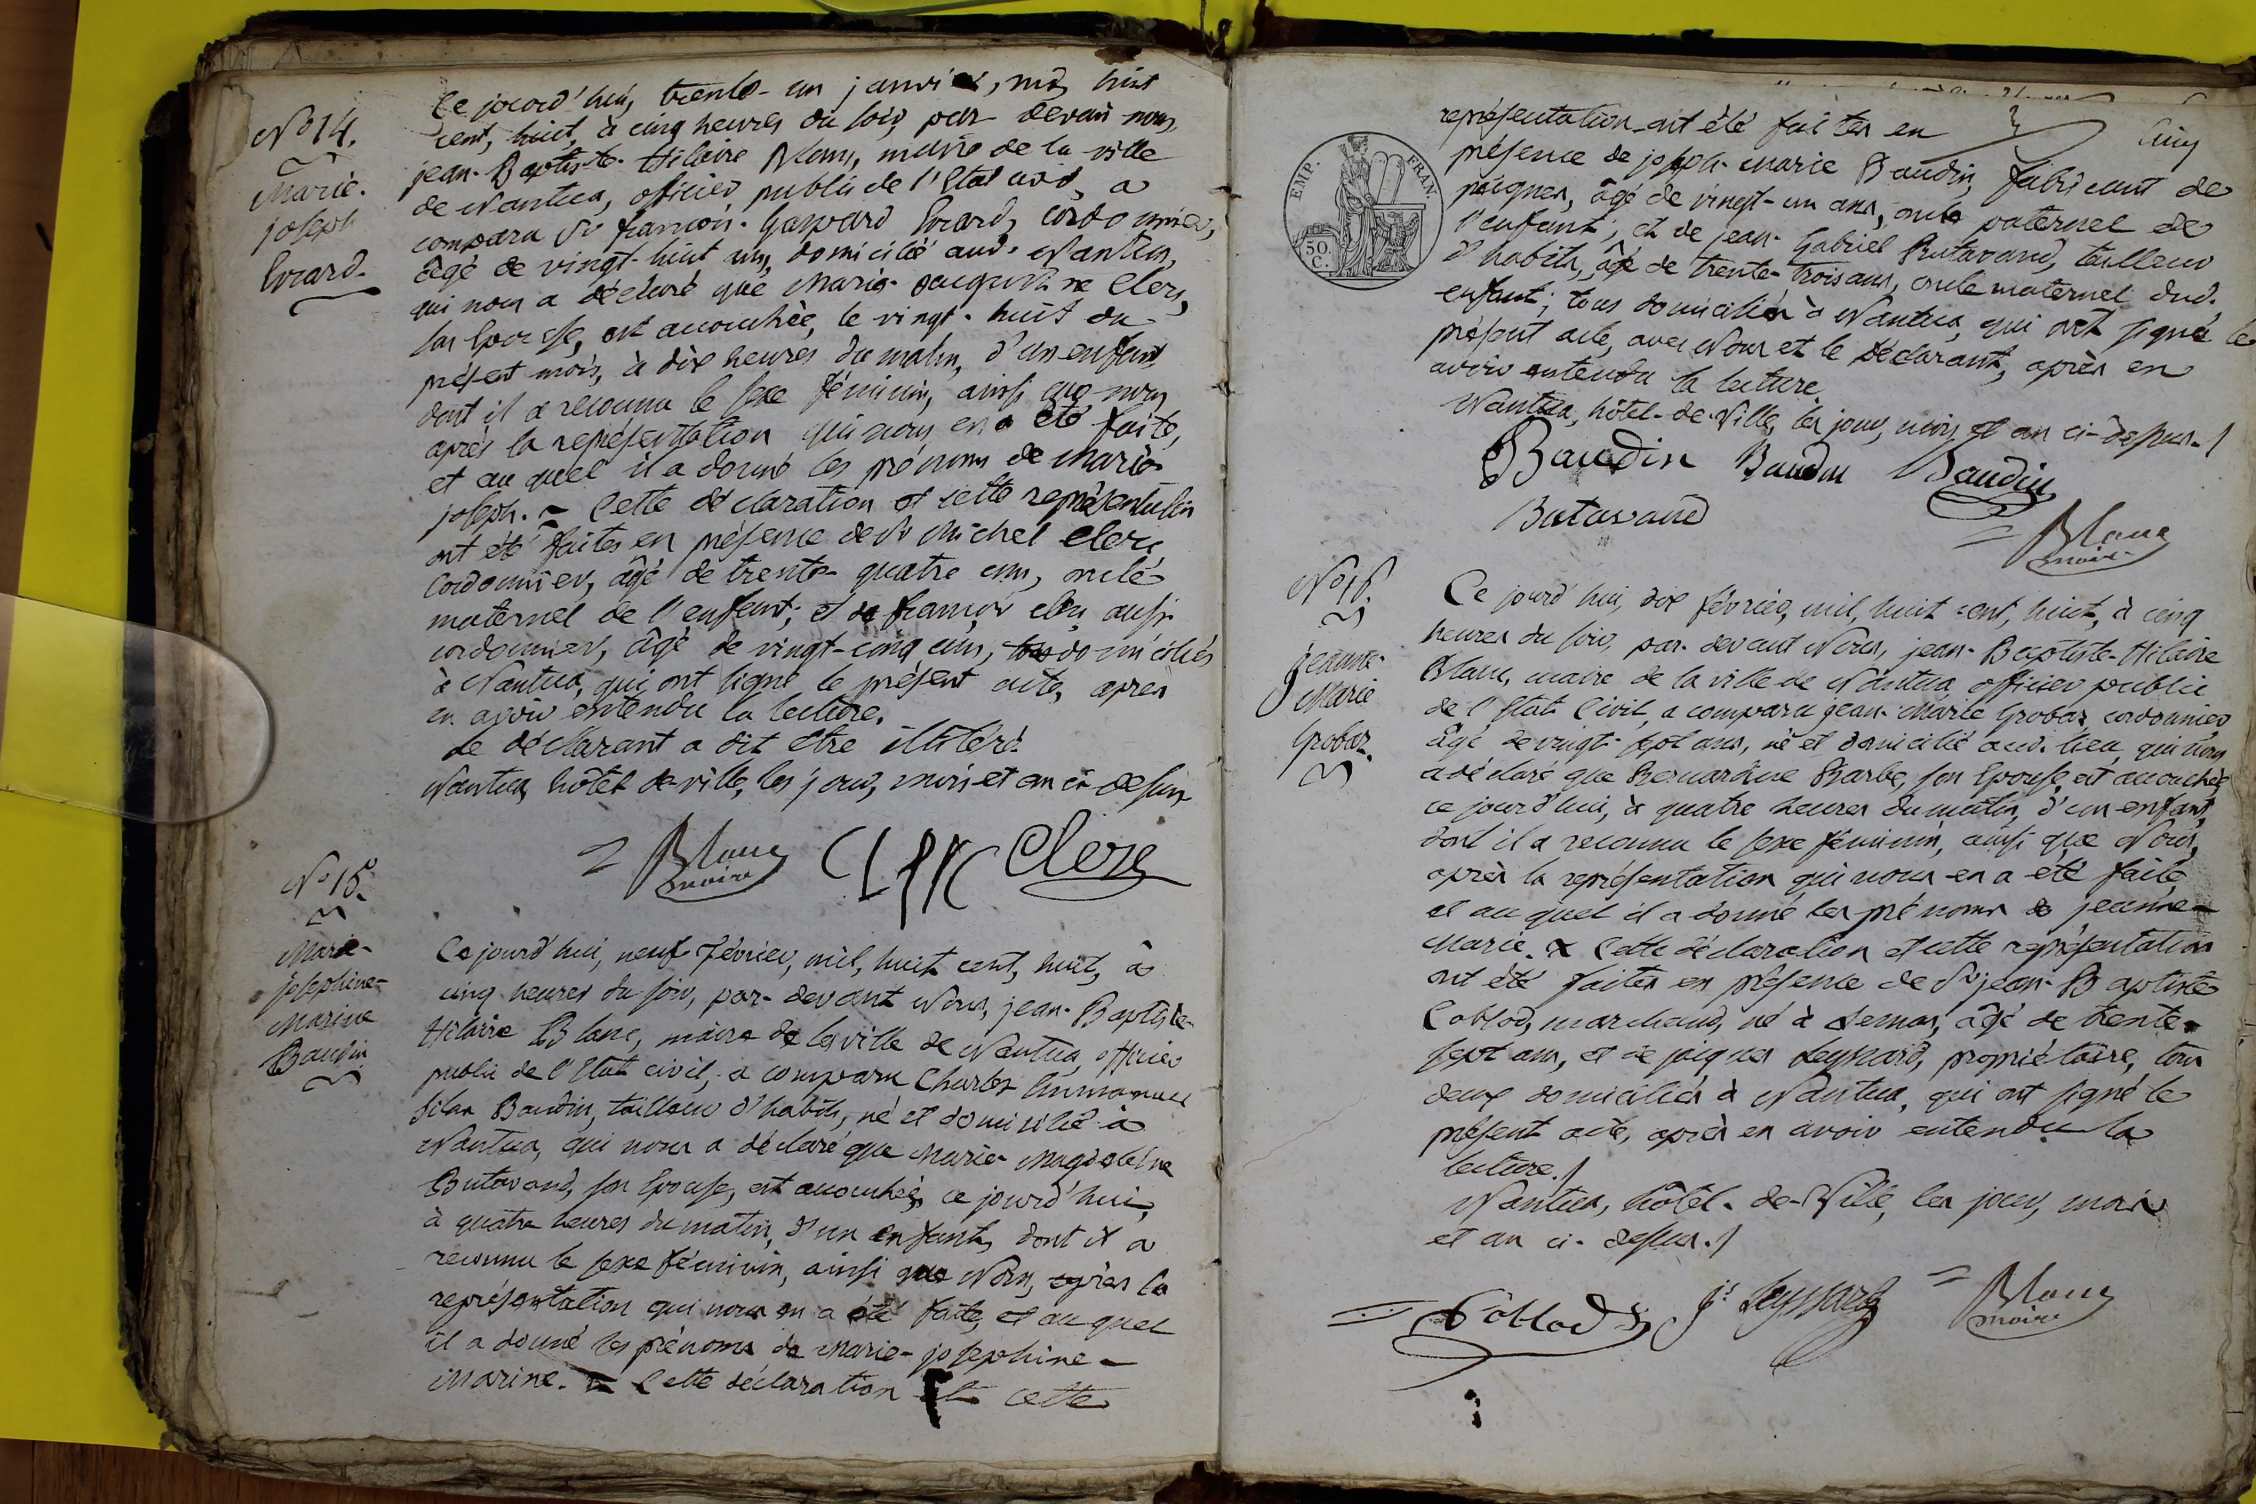 N.o 14.
Marie-
joseph
Evrard.
Ce jourd'hui, trente-un janvier, mil huit
cent, huit, à cinq heures du soir, par-devant nous,
jean-Baptiste-Hilaire Blanc, maire de la ville
de Nantua, officier public de l'Etat civil, a
comparu Sr françois-Gaspard Evrard, cordonnier,
âgé de vingt-huit ans, domicilié aud. Nantua,
qui nous a déclaré que Marie Clerc,
son Epouse, est accouchée, le vingt-huit du
présent mois, à dix heures du matin, d'un enfant
dont il a reconnu le sexe féminin, ainsi que nous
après la représentation qui nous en a été faite,
et au quel il a donné les prénoms de Marie-
joseph. Cette déclaration et cette représentation
ont été faites en présence de Sr Michel Clerc
cordonnier, âgé de trente-quatre ans, oncle
maternel de l'enfant; et de françois Clerc, aussi
cordonnier, âgé de vingt-cinq ans, domiciliés
à Nantua, qui ont signé le présent acte, après
en avoir entendu la lecture.
Le déclarant a dit être illitéré.
Nantua, hôtel-de-ville, les jour, mois et an ci-dessus
Blanc
maire
Clerc
N.o 15.
Marie-
josephine-
Marine
Baudin
Ce jourd'hui, neuf février, mil, huit cent, huit, à
cinq heures du soir, par-devant Nous, jean-Baptiste-
Hilaire Blanc, maire de la ville de Nantua, officier
public de l'Etat civil, a comparu Charles Emmanuel
Baudin, tailleur d'habits, né et domicilié à
Nantua, qui nous a déclaré que Marie-Magdeleine
Butavand, son Epouse, est accouchée, ce jourd'hui,
à quatre heures du matin, d'un enfant, dont il a
reconnu le sexe féminin, ainsi que Nous, après la
représentation qui nous en a été faite, et au quel
il a donné les prénoms de Marie-josephine-
Marine. Cette déclaration et cette
cinq
représentation ont été faites en
présence de joseph-Marie Baudin, fabricant de
peignes, âgé de vingt-un ans, oncle paternel de
l'enfant; et de jean-Gabriel Butavand, tailleur
d'habits, âgé de trente-trois ans, oncle maternel dud.
enfant; tous domiciliés à Nantua, qui ont signé le
présent acte, avec Nous et le déclarant, après en
avoir entendu la lecture.
Nantua, hôtel-de-Ville, les jour, mois et an ci-dessus./
EMP. FRAN.
50 C.
Baudin Baudin Baudin
Butavand
Blanc
maire
N.o 16.
jeanne-
Marie
Grobas.
Ce jourd'hui, dix février, mil, huit cent, huit, à cinq
heures du soir, par-devant Nous, jean-Baptiste-Hilaire
Blanc, maire de la ville de Nantua, officier public
de l'Etat Civil, a comparu jean-Marie Grobas, cordonnier
âgé de vingt-sept ans, né et domicilié aud. lieu, qui nous
a déclaré que Bernardine Barbe, son Epouse, est accouchée
ce jourd'hui, à quatre heures du matin, d'un enfant,
dont il a reconnu le sexe féminin, ainsi que Nous,
après la représentation qui nous en a été faite,
et au quel il a donné les prénoms de jeanne-
Marie. Cette déclaration et cette représentation
ont été faites en présence de Sr jean-Baptiste
Coblod, marchand, né à Sernas, âgé de trente-
sept ans, et de jacques Leyssard, propriétaire, tous
deux domiciliés à Nantua, qui ont signé le
présent acte, après en avoir entendu la
lecture./
Nantua, hôtel-de-Ville, les jour, mois
et an ci-dessus./
Coblod js Leyssard Blanc
maire